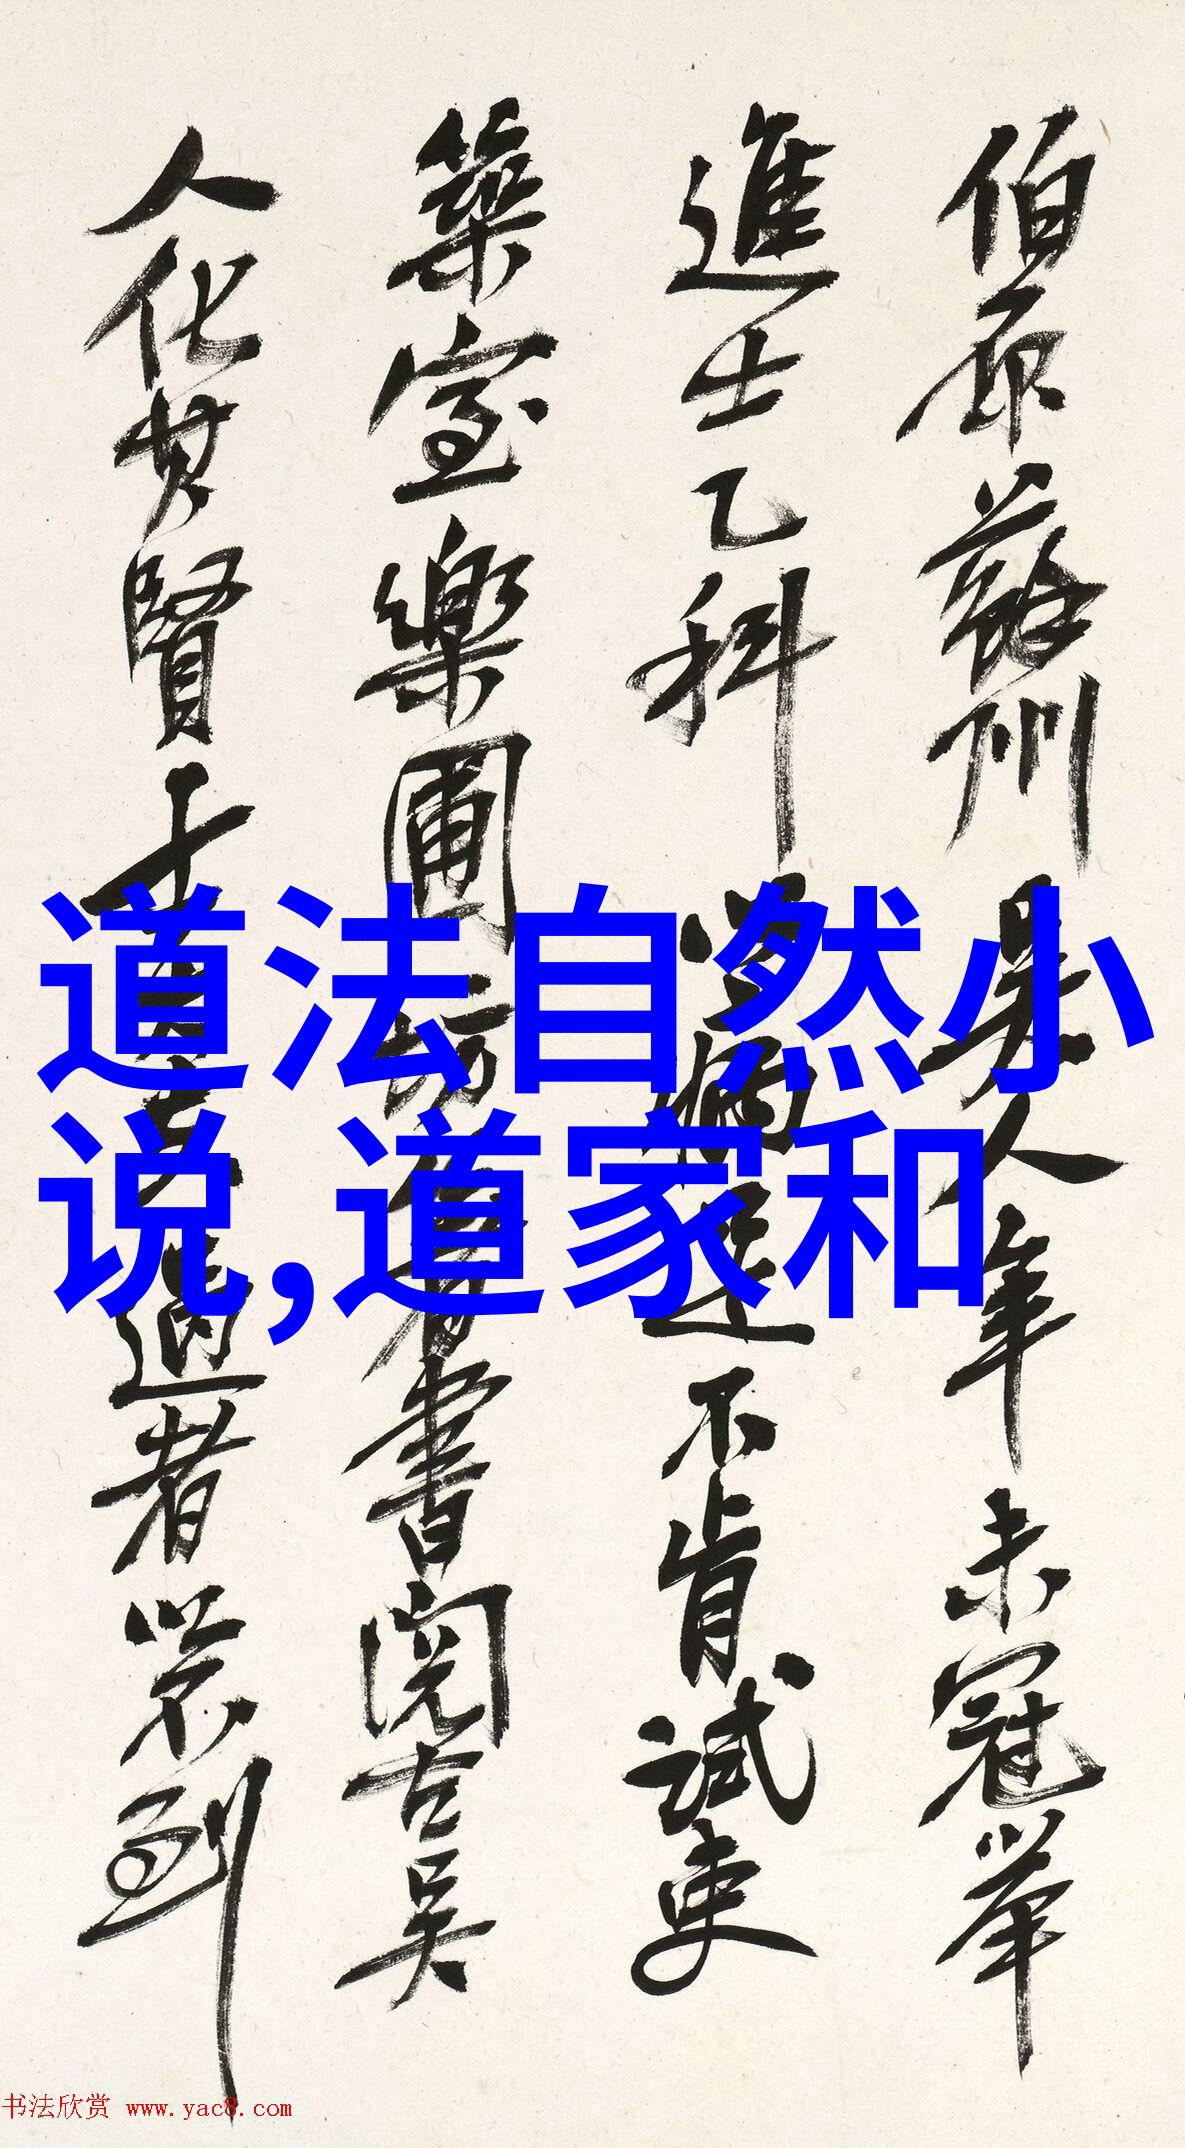 伯原蘇州吳人年未冠舉
進士乙科病足不肯試吏
築室樂圃坊有書閱古吳
人化其賢士大夫過者以不到
道法自然小
说,道家和
书法欣赏 www.yac8.com